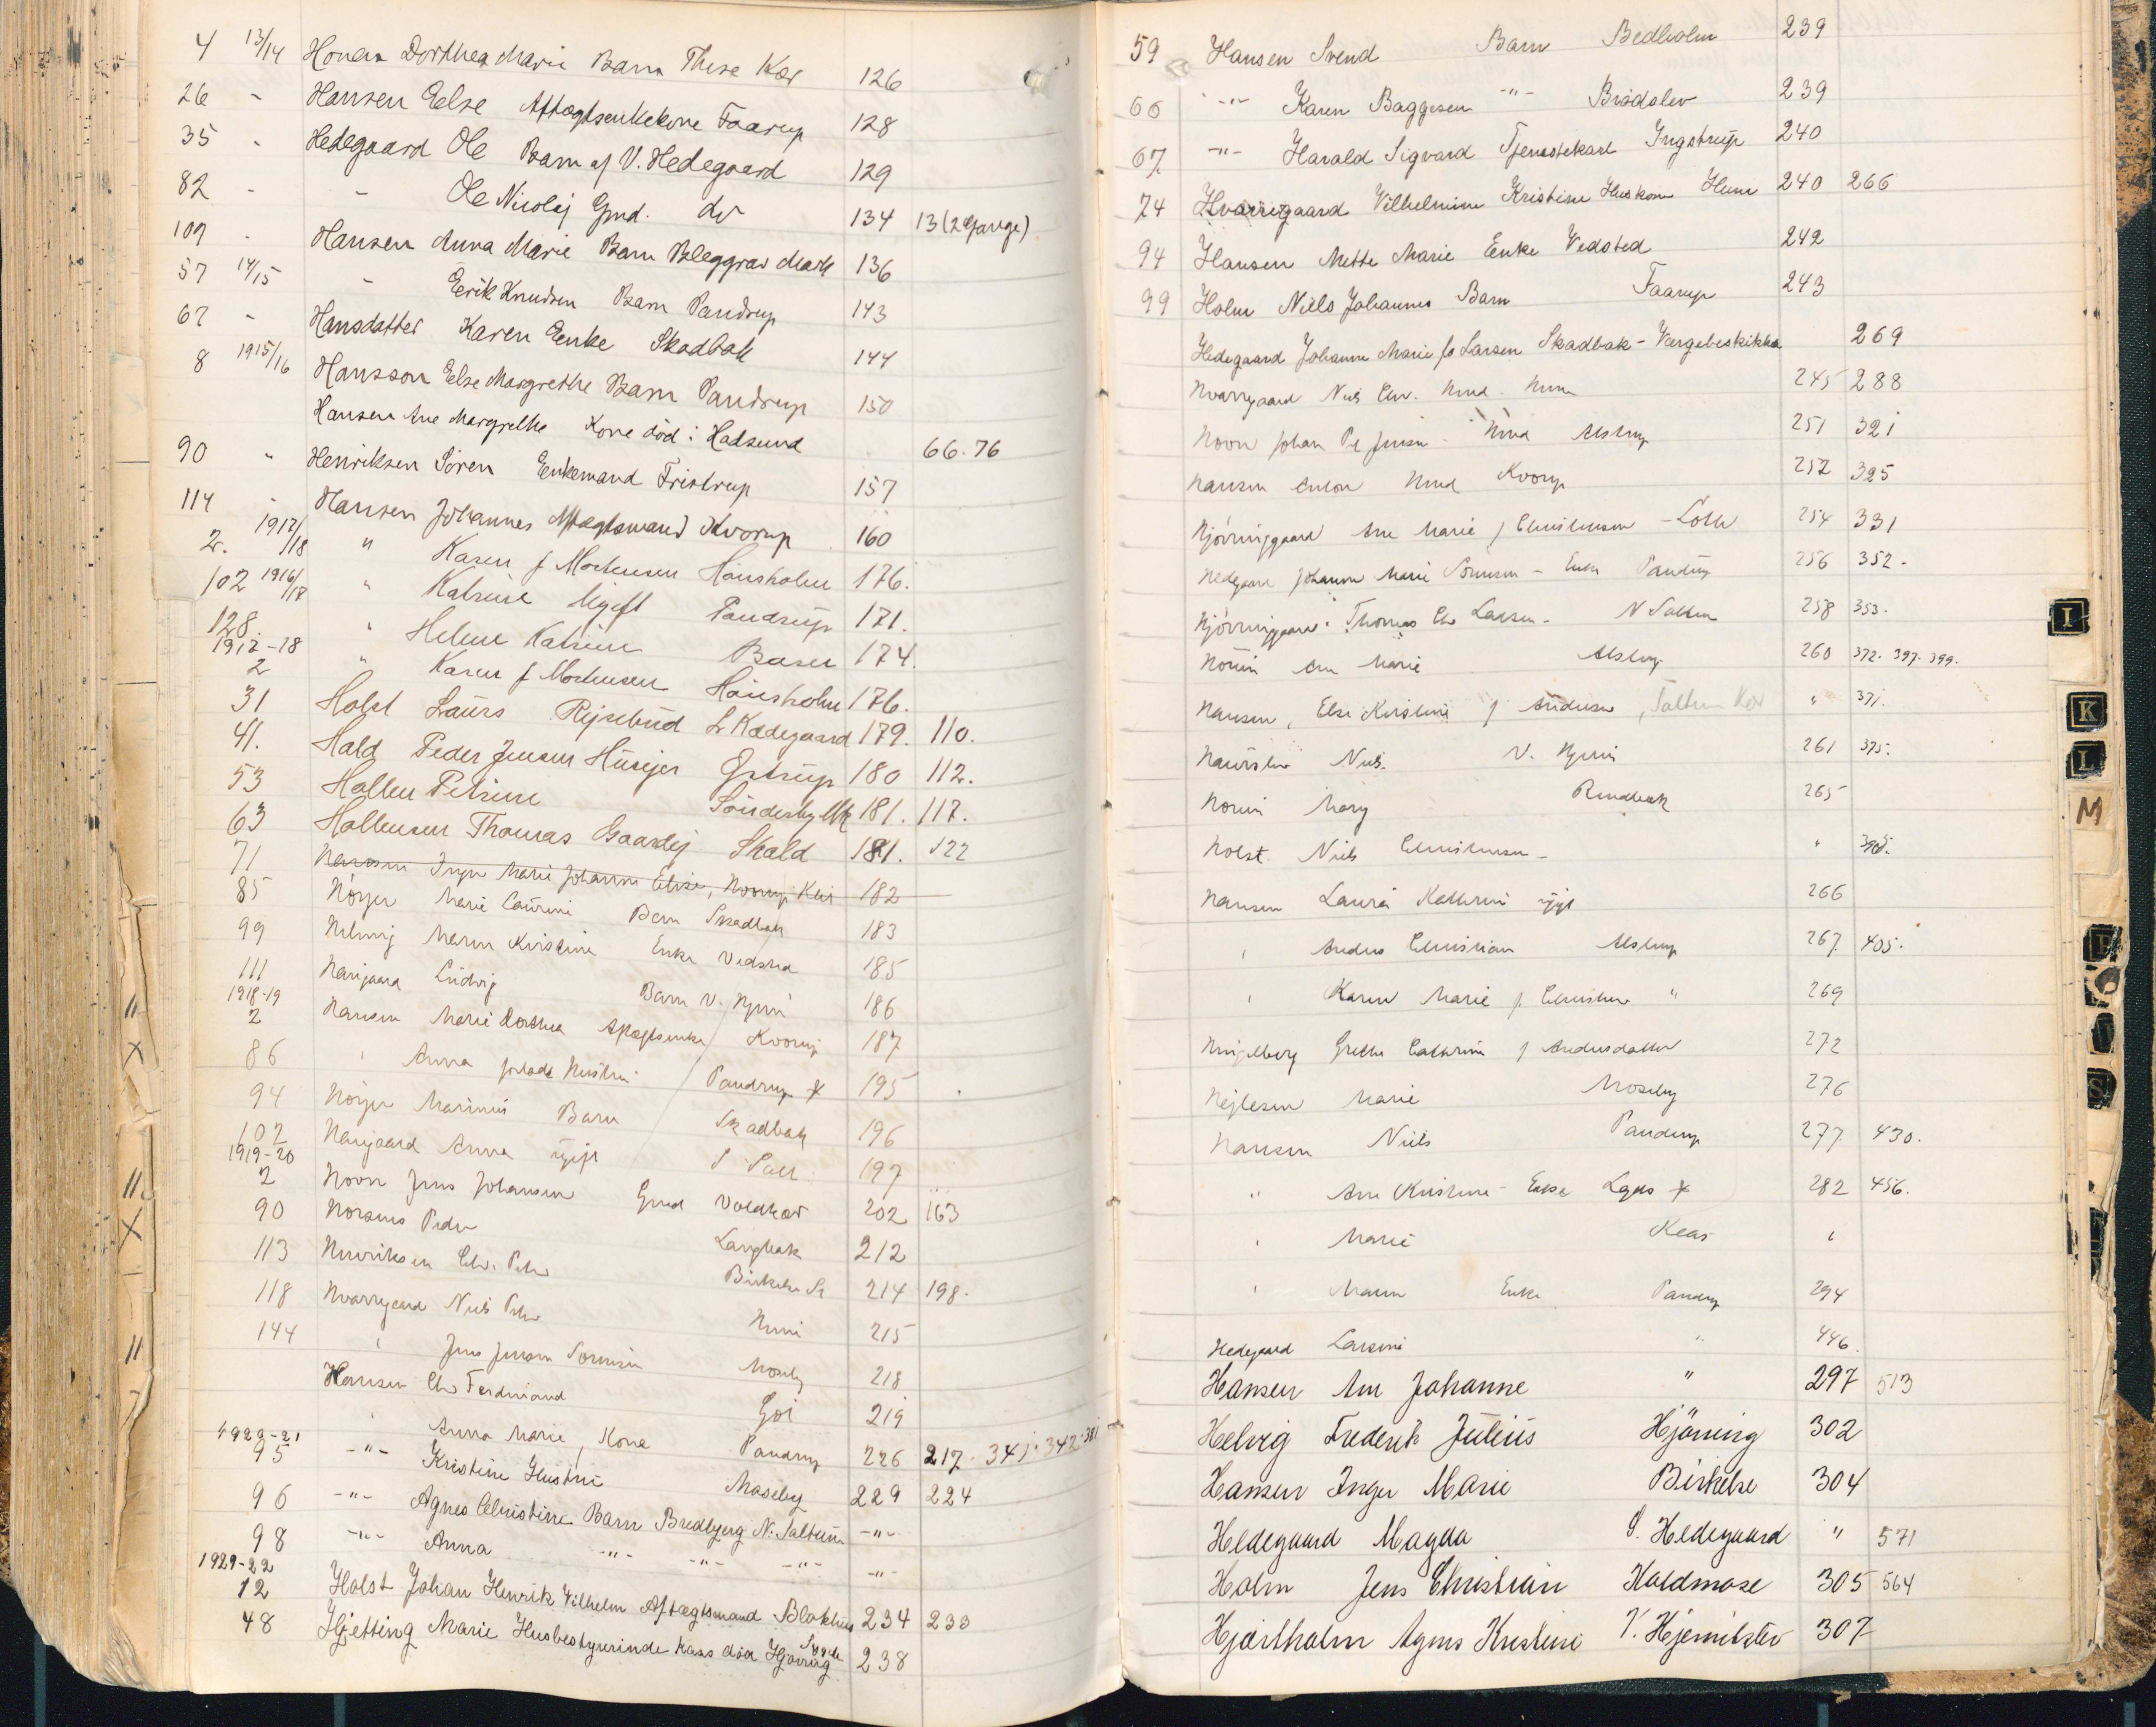 4 13/14 Dorthea Marie Barn Thise Kær 126
26 - Hansen Else Aftægtsenkekone Faarup 128
35 - Hedegaard Ole Barn af V. Hedegaard 129
82 - - Ole Nicolaj Gmd. do 134 13 (2 Gange)
109 - Hansen Anna Marie Barn Bleggrav Mark 136
57 14/15 - Erik Knudsen Barn Pandrup 143
67 - Hansdatter Karen Enke Skadbak 144
8 1915/16 Hansson Else Margrethe Barn Pandrup 150
Hansen Ane Margrethe Kone død i Hadsund 66.76
90 " Henriksen Sören Enkemand Fristrup 157
114 - Hansen Johannes Aftægtsmand Kvorup 160
2. 1917/18 " Karen f Mortensen Hönsholm 176.
102 1916/17 " Katrine Ugift Pandrup 171.
128 " Helene Katrine 174.
1917-18
2 " Karen f Mortensen Hönsholm 176.
31 Holst Laurs Rejsebud L Kædegaard 179. 110.
41. Hald Peder Jensen Husejer Gjstrup 180 112.
53 Hollen Petrine Sönderby 181. 117.
63 Hollensen Thomas Gaardej Skald 181. 122
71 Hansen Inger Marie Johanne Elise, 182
85 Höyer Marie Laurine Barn Skadbak 183
99 Helvig Maren Kristine Enke Vedsted 185
111 Harigaard Ludvig Barn V. Hjermi 186
1918-19
2 Hansen Marie Dorthea Aftægtsenke Kvorup 187
86 " Anna Hustru Pandrup x 195
94 Höyer Marinus Barn Skadbak 196
102 Harigaard Anna ugift S Salt. 197
1919-20
2 Hoon Jens Johansen Gmd 202 163
90 Peder Langbak 212
113 Henriksen Chr. Peter Birkelse 214 198.
118 Hvarregaard Niels Peter Hune 215
144 " Jens Jensen Sörensen Moseby 218
Hansen Chr Ferdinand Gøl 219
" Anna Marie, Kone Pandrup 226 217. 341. 342. 381
1920-21
95 -"- Kristine Hustru Moseby 229 224
96 -"- Agnes Christine Barn Bredbjerg N. Saltum -"-
98 -"- Anna -"- -"- -"- -"-
1921-22
12 Holst Johan Henrik Vilhelm Aftægtsmand Blokhus 234 233
48 Hjetting Marie Husbestyrerinde Kaas død Hjörring Sygeh 238
59 Hansen Svend Barn Bedholm 239
66 -"- Karen Baggesen -"- Brødslev 239
67 -"- Harald Sigvard Tjenestekarl Ingstrup 240
74 Hvarregaard Vilhelmine Kristine Huskone Hune 240 266
94 Hansen Mette Marie Enke Vedsted 242
99 Holm Niels Johannes Barn Faarup 243
Hedegaard Johanne Marie f. Larsen Skadbak - Værgebeskikkn 269
Hvarregaard Niels Chr. Hmd. Hune 245 288
Hoon Johan Pe Jensen - Hmd Alstrup 251 321
Hansen Anton Hmd Kvorup 252 325
Hjörringgaard Ane Marie f Christensen - 254 331
Hedegaard Johanne Marie Sörensen - Enke Pandrup 256 352.
Hjörringgaard Thomas Chr Larsen - N Saltum 258 353.
Ane Marie Alstrup 260 372. 397. 399.
Hansen, Else Kirstine f Andersen, Saltum Kær " 371.
Niels. V. Hjermi 261 375.
Mary Rendbæk 265
Holst Niels Christensen - "
Hansen Laura Kathrine ugift 266
" Anders Christian Alstrup 267 405.
" Karen Marie f. Christensen " 269
Hingelberg Grethe Cathrine f Andersdatter 272
Hejlesen Marie Moseby 276
Hansen Niels Pandrup 277 430.
" Ane Kirstine - Enke x 282 456.
" Marie Kaas "
" Maren Enke Pandrup 294
Hedegaard Larsine " 446.
Hansen Ane Johanne " 297 513
Helvig Frederik Julius Hjörring 302
Hansen Inger Marie Birkelse 304
Heldegaard Magda S. Heldegaard " 571
Holm Jens Christian Koldmose 305 564
Hjortholm Agnes Kristine V. Hjermitslev 307
I
K
L
M
P
S